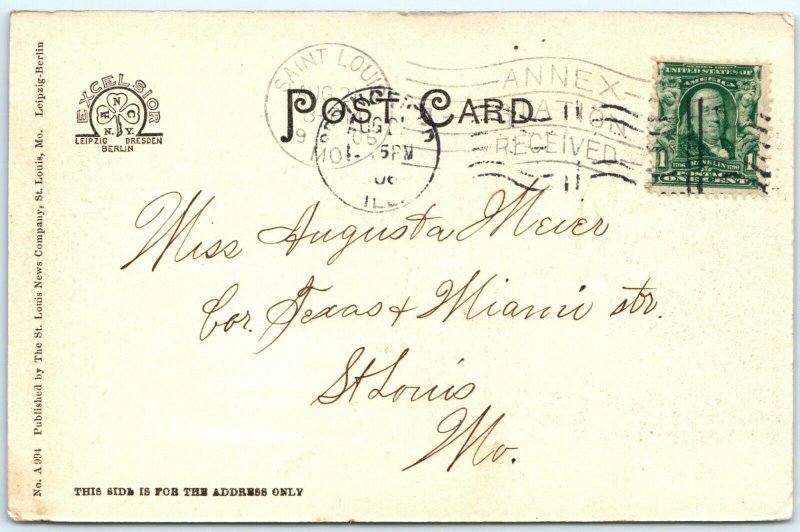 No. A 994 Published by The St. Louis News Company, St. Louis, Mo. Leipzig-Berlin
EXCELSIOR
A N C
N. Y.
LEIPZIG DRESDEN
BERLIN
POST CARD
SAINT LOUIS
MO.
AUG
06
5 PM
ILL.
ANNEX
STATION
RECEIVED
SERIES 1902
UNITED STATES OF
AMERICA
1 1
1706 FRANKLIN 1790
POSTAGE
ONE CENT
Miss Augusta Meier
Cor. Texas & Miami str.
St Louis
Mo.
THIS SIDE IS FOR THE ADDRESS ONLY